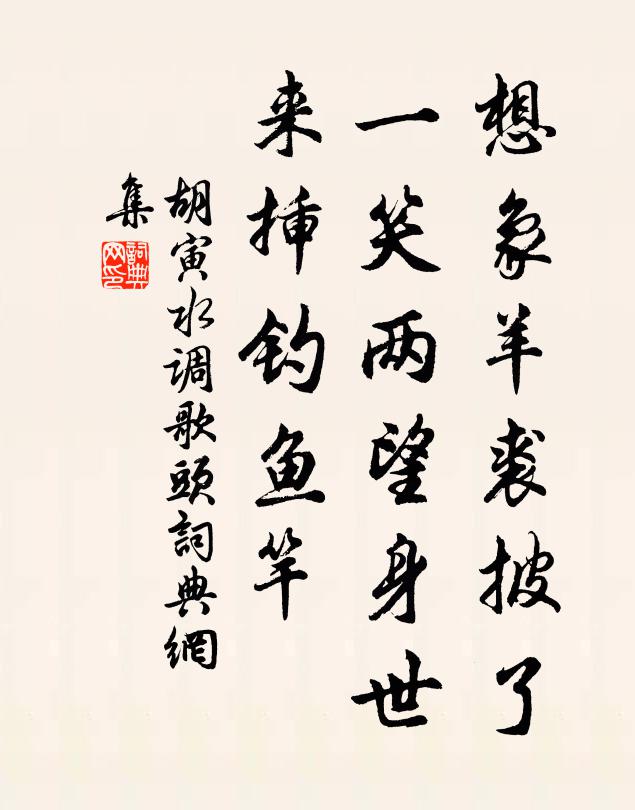 想象羊裘披了
一笑两望身世
来揷钓鱼竿
胡寅水调歌頭詞典網
集
詞典网印